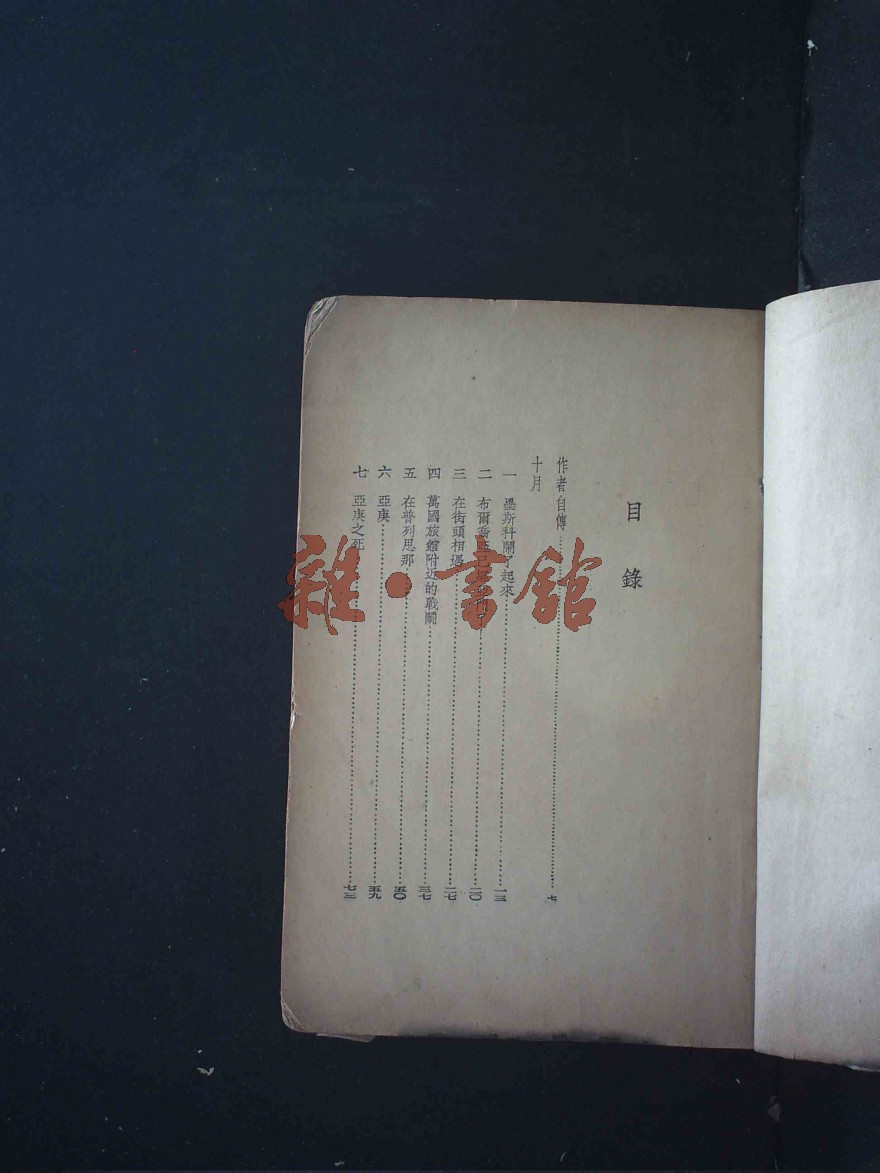 目錄
作者自傳……七
十月
一 墨斯科鬧了起來……一三
二 布爾喬亞已……二〇
三 在街頭相遇……二七
四 萬國旅館附近的戰鬭……三七
五 在普列思那……五〇
六 亞庚……五九
七 亞庚之死……七三
雜·書館